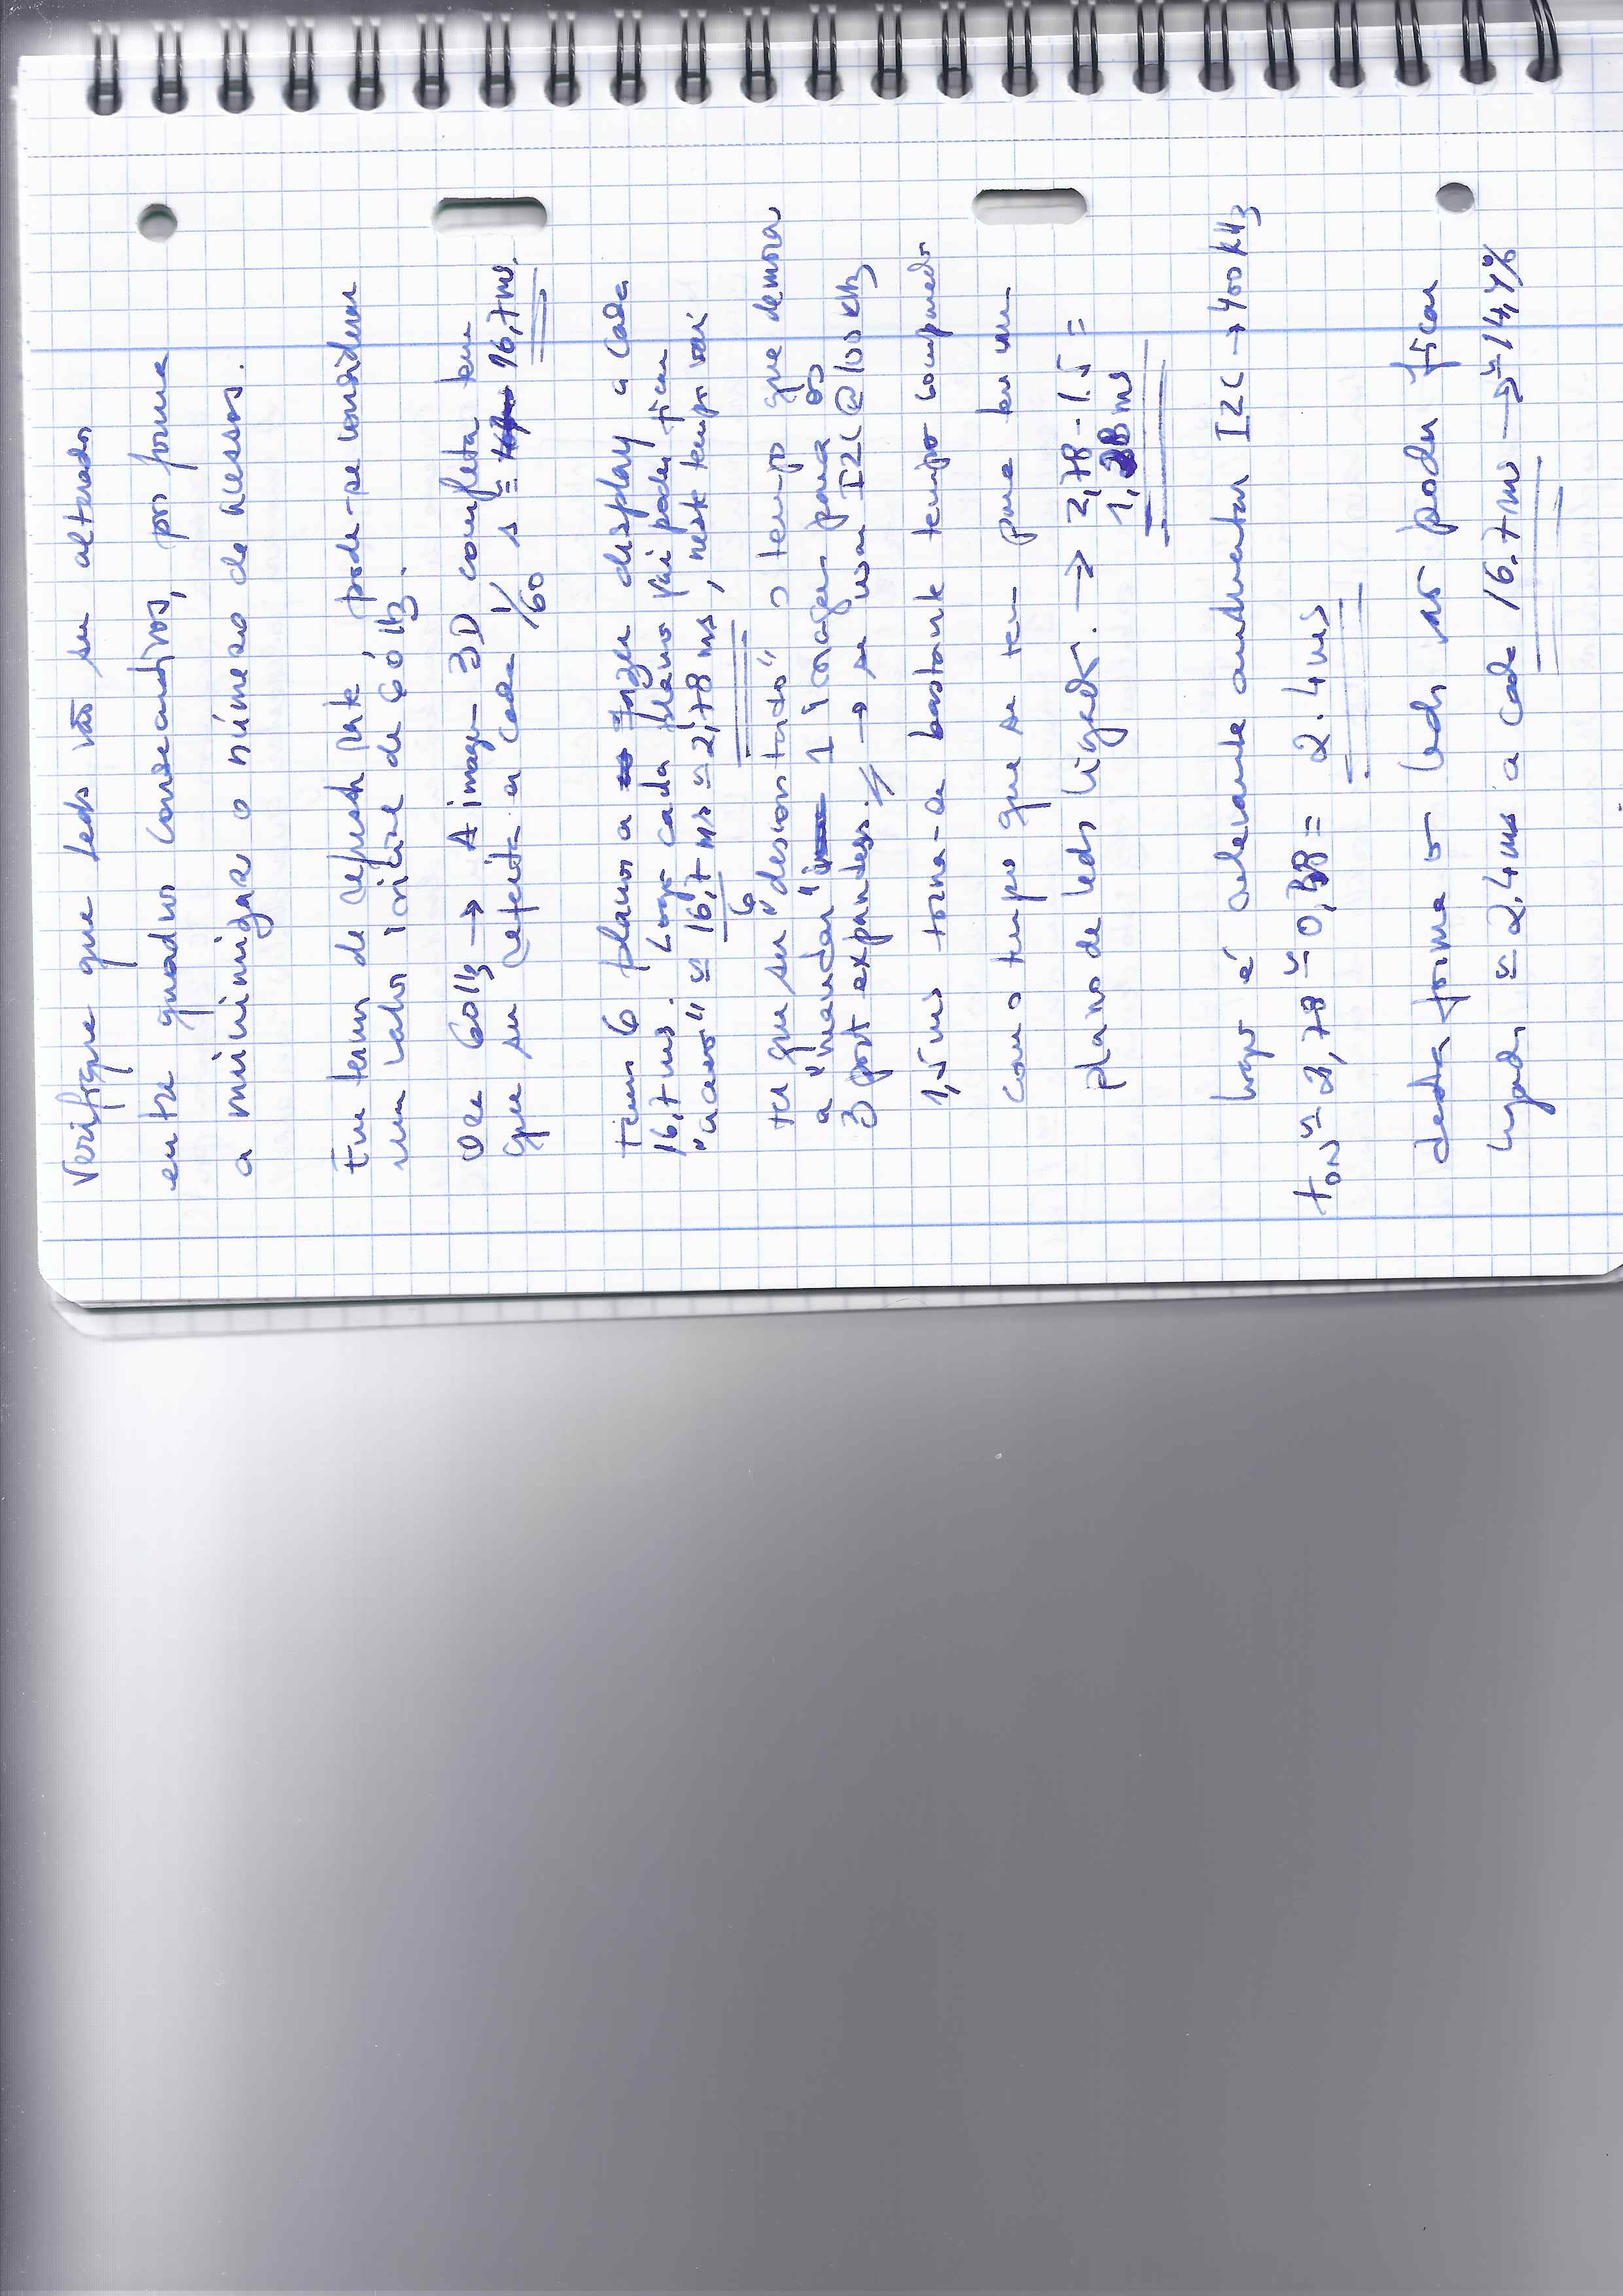 Verifique que leds vão ser alterados
entre quadros consecutivos, por forma
a minimizar o número de acessos.
Em termos de refresh rate pode-se considerar
um valor de 60 Hz.
Ver 60Hz → A imagem 3D completa tem
que ser refeita a cada 1/60 s ≈ 16,7ms.
temos 6 planos a fazer display a cada
16,7 ms. Logo cada plano vai poder ficar
"aceso" ≈ 16,7 ms / 6 ≈ 2,78 ms, neste tempo vai
ter que ser "descontado" o tempo que demora
a "mandar" 1 imagem para os
3 port expanders. → se usar I2C @ 100 kHz
1,5 ms torna-se bastante tempo comparado
com o tempo que se tem para ter um
plano de leds ligados. → 2,78 - 1.5 =
1,28 ms
logo é relevante aumentar I2C → 400 kHz
tON ≈ 2,78 - 0,38 = 2.4ms
desta forma os leds só podem ficar
ligados ≈ 2,4ms a cada 16.7ms → ≈ 14,4%